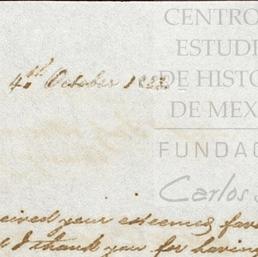 CENTRO
ESTUDI
DE HISTO
DE MEX
FUNDAC
Carlos
4th October
ceived your esteemed fav
I thank you for having